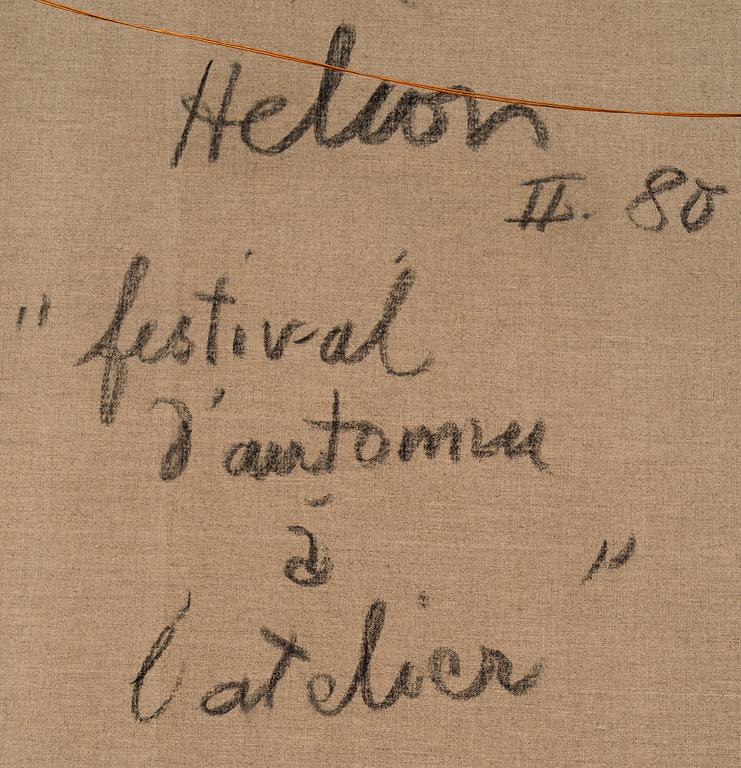 Helion
II. 80
" festival
d'automne
à "
l'atelier